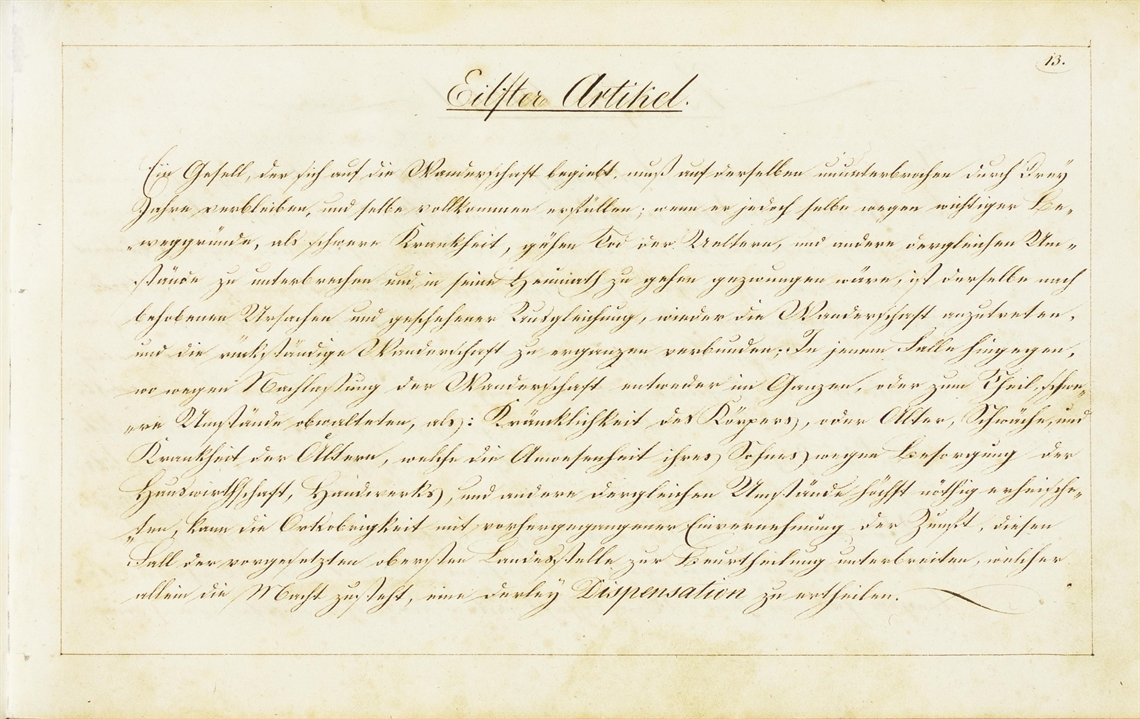 13.
Eilfter Artikel.
Ein Gesell, der sich auf die Wanderschaft begiebt, muß auf derselben ununterbrochen durch drey
Jahre verbleiben, und selbe vollkommen erfüllen; wenn er jedoch selbe wegen wichtiger Be„
„weggründe, als schwere Krankheit, gähen Tod der Aeltern, und andere dergleichen Um„
stände zu unterbrechen und in seine Heimath zu gehen gezwungen wäre, ist derselbe nach
behobenen Ursachen und geschehener Ausgleichung, wieder die Wanderschaft anzutreten,
und die rückständige Wanderschaft zu ergänzen verbunden; In jenem Falle hingegen,
wo wegen Nachlassung der Wanderschaft entweder im Ganzen, oder zum Theil, schwe„
„re Umstände obwalteten, als: Kränklichkeit des Körpers, oder Alter, Schwäche, und
Krankheit der Ältern, welche die Anwesenheit ihres Sohnes wegen Besorgung der
Hauswirthschaft, Handwerks, und andere dergleichen Umstände höchst nöthig erheische„
„ten, kann die Ortsobrigkeit mit vorhergegangener Einvernehmung der Zunft, diesen
Fall der vorgesetzten obersten Landesstelle zur Beurtheilung unterbreiten, welcher
allein die Macht zusteht, eine derley Dispensation zu ertheilen.